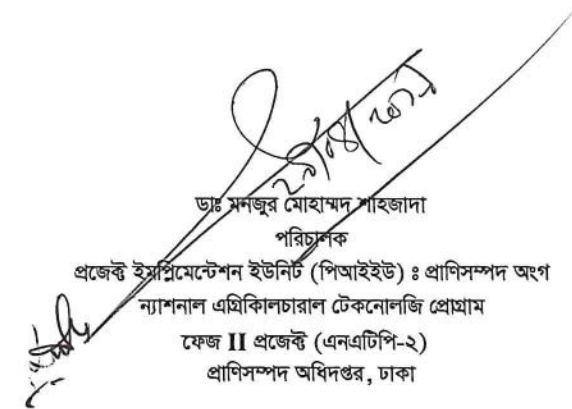 ডাঃ মনজুর মোহাম্মদ শাহজাদা
পরিচালক
প্রজেক্ট ইমপ্লিমেন্টেশন ইউনিট (পিআইইউ) ঃ প্রাণিসম্পদ অংগ
ন্যাশনাল এগ্রিকালচারাল টেকনোলজি প্রোগ্রাম
ফেজ II প্রজেক্ট (এনএটিপি-২)
প্রাণিসম্পদ অধিদপ্তর, ঢাকা